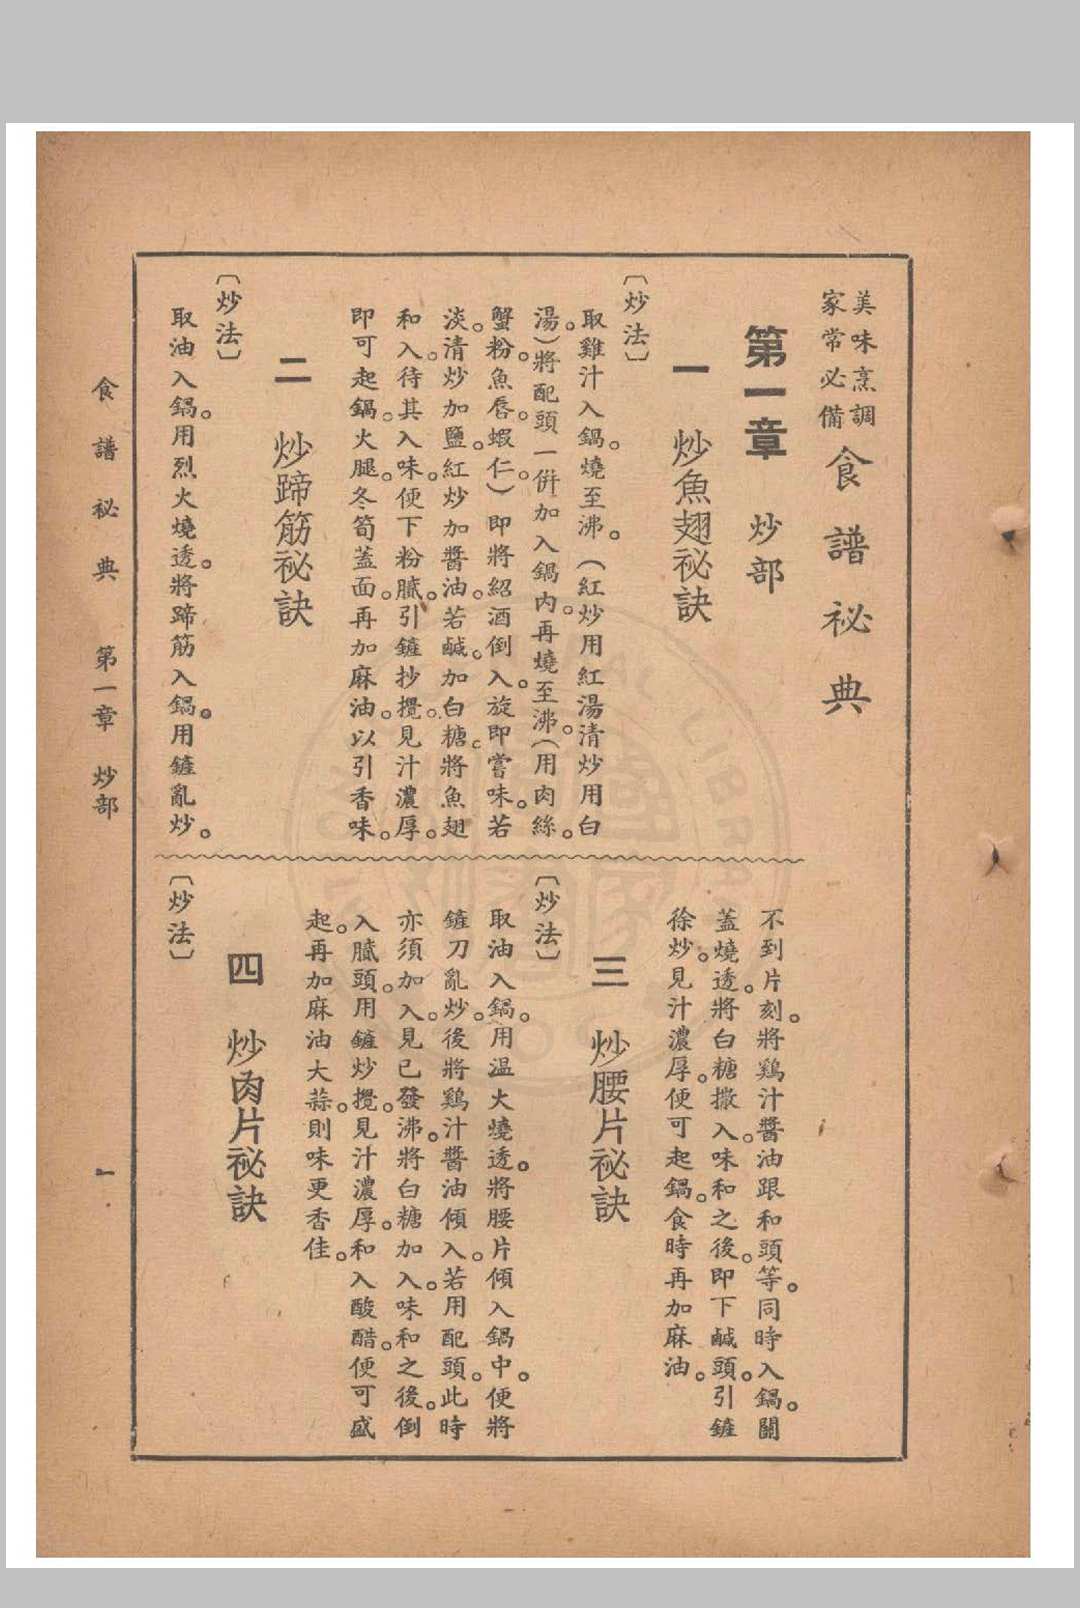 美味烹調
家常必備
食譜祕典
第一章 炒部
一 炒魚翅祕訣
〔炒法〕
取雞汁入鍋。燒至沸。（紅炒用紅湯清炒用白
湯）。將配頭一併加入鍋內。再燒至沸。（用肉絲。
蟹粉。魚唇。蝦仁。）即將紹酒倒入。旋即嘗味。若
淡。清炒加鹽。紅炒加醬油。若鹹。加白糖。將魚翅
和入。待其入味。便下粉膩。引鏟抄攪。見汁濃厚。
即可起鍋。火腿。冬筍蓋面。再加麻油。以引香味。
二 炒蹄筋祕訣
〔炒法〕
取油入鍋。用烈火燒透。將蹄筋入鍋。用鏟亂炒。
不到片刻。將鷄汁醬油跟和頭等。同時入鍋。關
蓋燒透。將白糖撒入。味和之後。即下鹹頭。引鏟
徐炒。見汁濃厚。便可起鍋。食時再加麻油。
三 炒腰片祕訣
〔炒法〕
取油入鍋。用温火燒透。將腰片傾入鍋中。便將
鏟刀亂炒。後將鷄汁醬油傾入。若用配頭。此時
亦須加入。見已發沸。將白糖加入。味和之後。倒
入膩頭。用鏟炒攪。見汁濃厚。和入酸醋。便可盛
起。再加麻油大蒜。則味更香佳。
四 炒肉片祕訣
〔炒法〕
食譜祕典 第一章 炒部 一